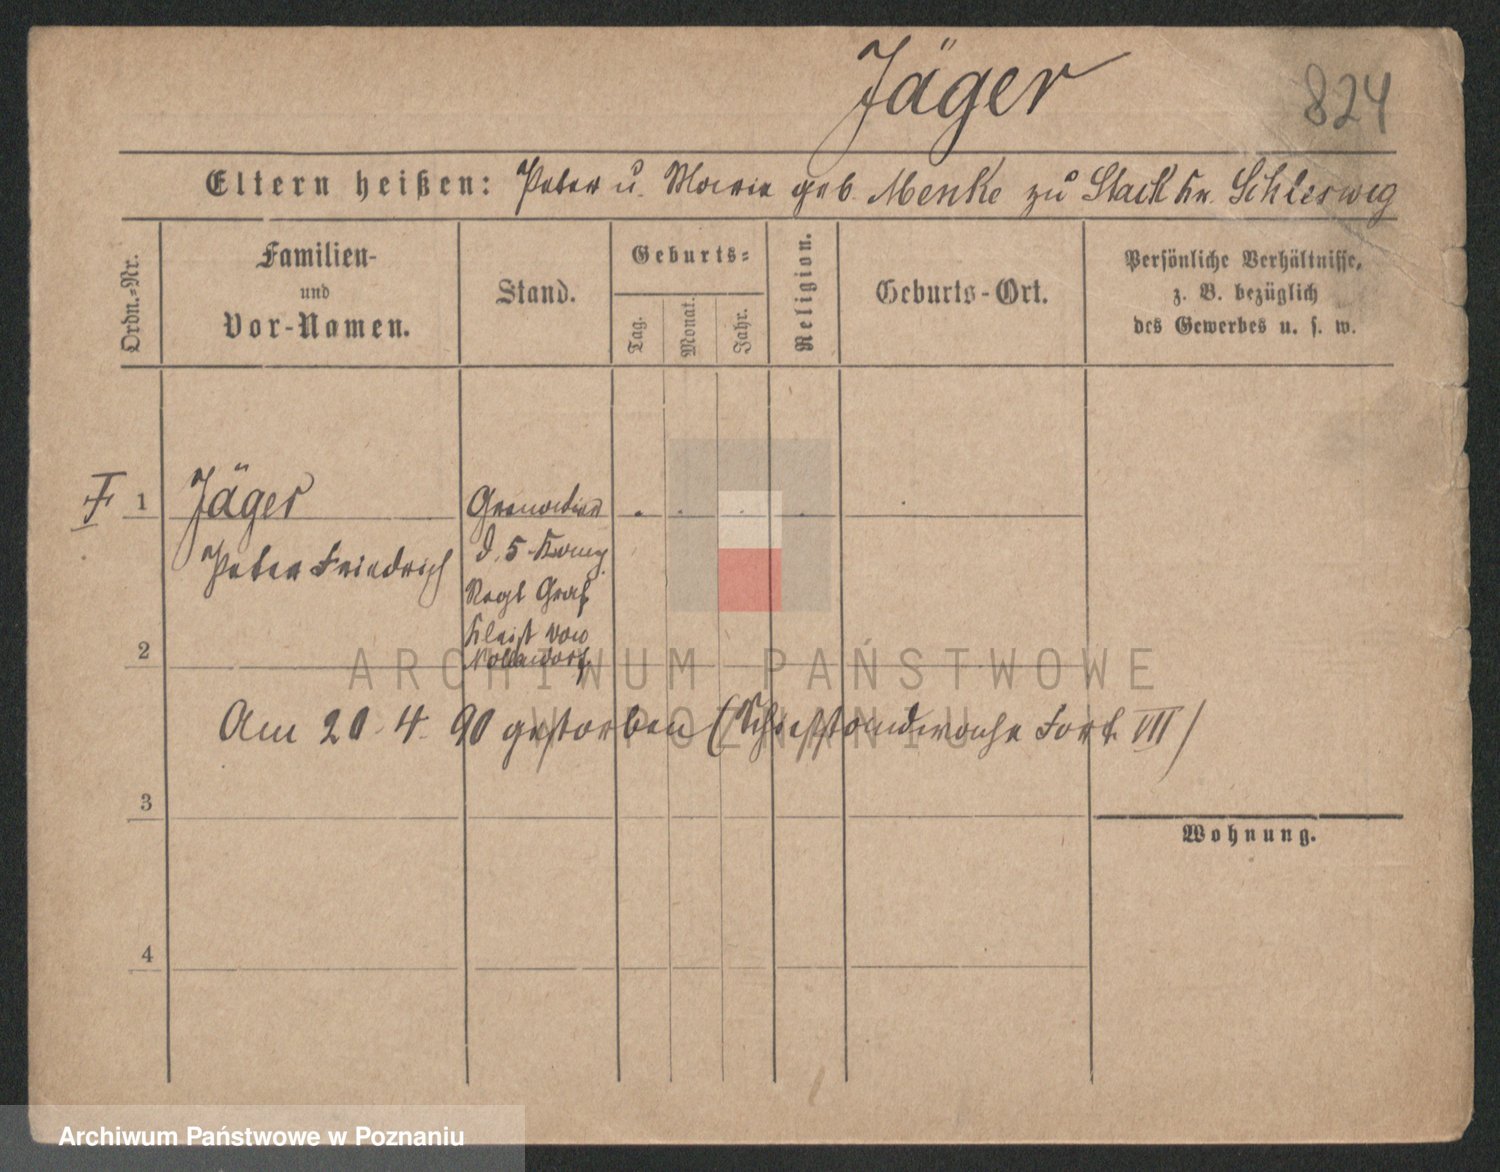 Jäger
824
Eltern heißen: Peter u. Marie geb. Menke zu Stack Kr. Schleswig
Ordn.-Nr.
Familien-
und
Vor-Namen.
Stand.
Geburts-
Tag.
Monat.
Jahr.
Religion.
Geburts-Ort.
Persönliche Verhältnisse,
z. B. bezüglich
des Gewerbes u. s. w.
1
Jäger
Peter Friedrich
Grenadier
d. 5 Komp.
Regt Graf
Kleist von
Nollendorf
2
Am 20. 4. 90 gestorben (Schießstandwache Fort VII)
3
Wohnung.
4
ARCHIWUM PAŃSTWOWE
W POZNANIU
Archiwum Państwowe w Poznaniu